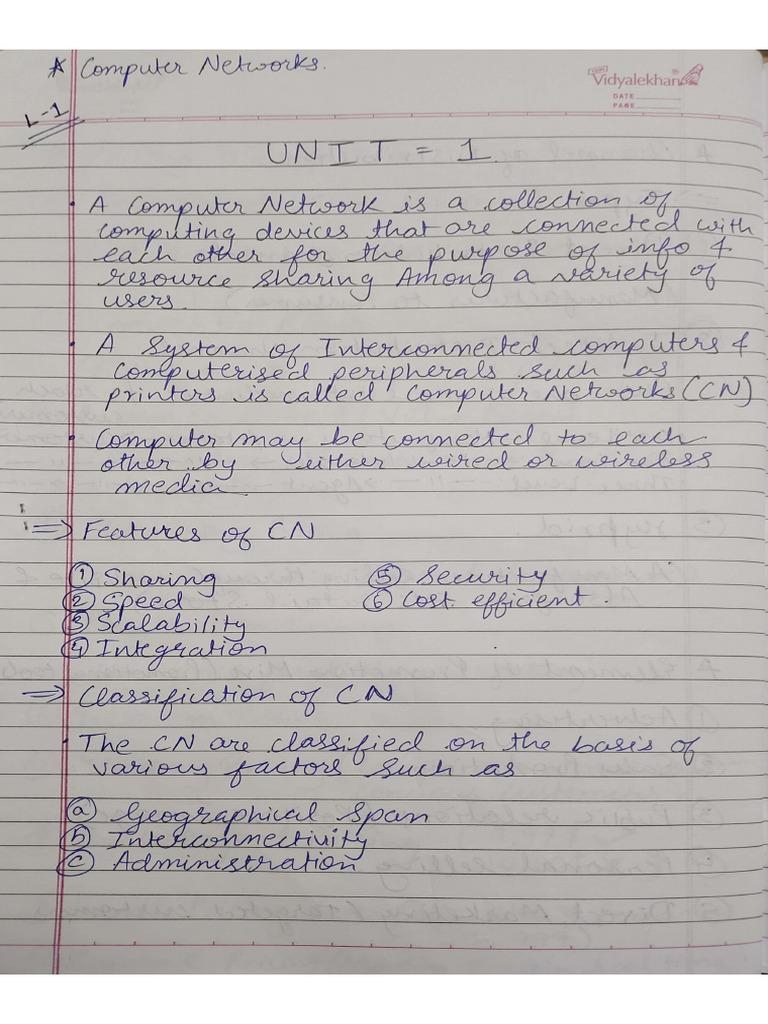 * Computer Networks.
Vidyalekhan
DATE
PAGE
L-1
UNIT = 1
• A Computer Network is a collection of
computing devices that are connected with
each other for the purpose of info &
resource sharing Among a variety of
users.
• A System of Interconnected computers &
computerised peripherals such as
printers is called Computer Networks (CN)
• Computer may be connected to each
other by either wired or wireless
media
=> Features of CN
① Sharing ⑤ Security
② Speed ⑥ Cost efficient.
③ Scalability
④ Integration
=> Classification of CN
• The CN are classified on the basis of
various factors such as
ⓐ Geographical Span
ⓑ Interconnectivity
ⓒ Administration